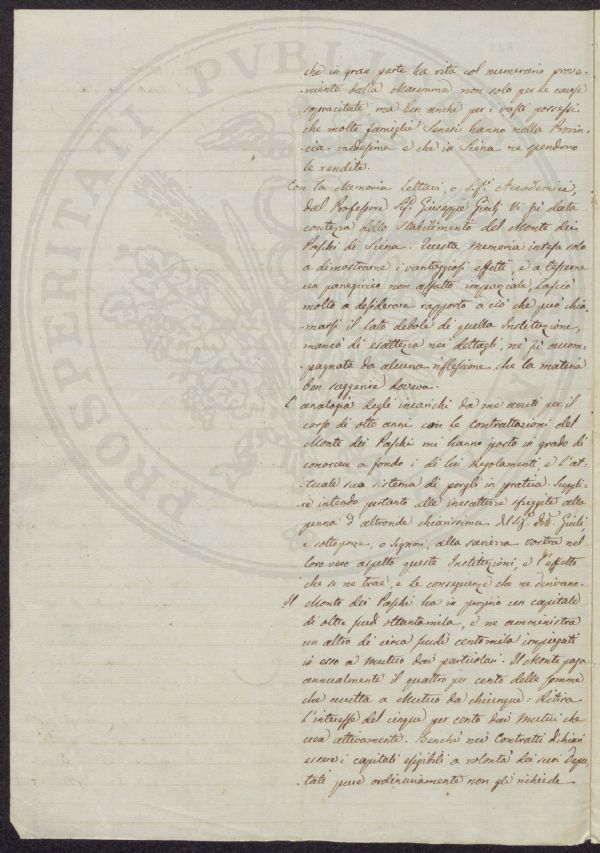 che in gran parte ha vita col numerario prove-
niente dalla Maremma non solo per le cause
sopracitate ma ben anche per i vasti possessi
che molte famiglie Senesi hanno nella Provin-
cia medesima e che in Siena ne spendono
le rendite.
Con la Memoria Lettavi, o Sigri Accademici,
dal Professore Sigr Giuseppe Giulj Vi fù data
contezza dello Stabilimento del Monte dei
Paschi di Siena. Questa memoria intesa solo
a dimostrarne i vantaggiosi effetti, e a tesserne
un panegirico non affatto imparziale, lasciò
molto a desiderare rapporto a ciò che può chia-
marsi il lato debole di quella Instituzione,
mancò di esattezza nei dettagli, nè fù accom-
pagnata da alcuna riflessione che la materia
ben suggerire doveva.
L'analogia degli incarichi da me avuti per il
corso di otto anni con le contrattazioni del
Monte dei Paschi mi hanno posto in grado di
conoscere a fondo i di lui Regolamenti, e l'at-
tuale suo sistema di porgli in pratica. Suppli-
re intendo pertanto alle inesattezze sfuggite alla
penna d'altronde chiarissima del Sigr Dott. Giulj,
e sottoporre, o Signori, alla saviezza vostra nel
loro vero aspetto queste Instituzioni, e l'effetto
che se ne trae, e le conseguenze che ne derivano.
Il Monte dei Paschi ha in proprio un capitale
di oltre scudi ottantamila, e ne amministra
un altro di circa scudi centomila impiegati
in esso a mutuo dai particolari. Il Monte paga
annualmente il quattro per cento delle somme
che accetta a Mutuo da chiunque: Ritira
l'interesse del cinque per cento dai Mutui che
crea attivamente. Benchè nei Contratti dichiari
essere i capitali esigibili a volontà dei suoi Depu-
tati pure ordinariamente non gli richiede
PROSPERITATI PVBLI